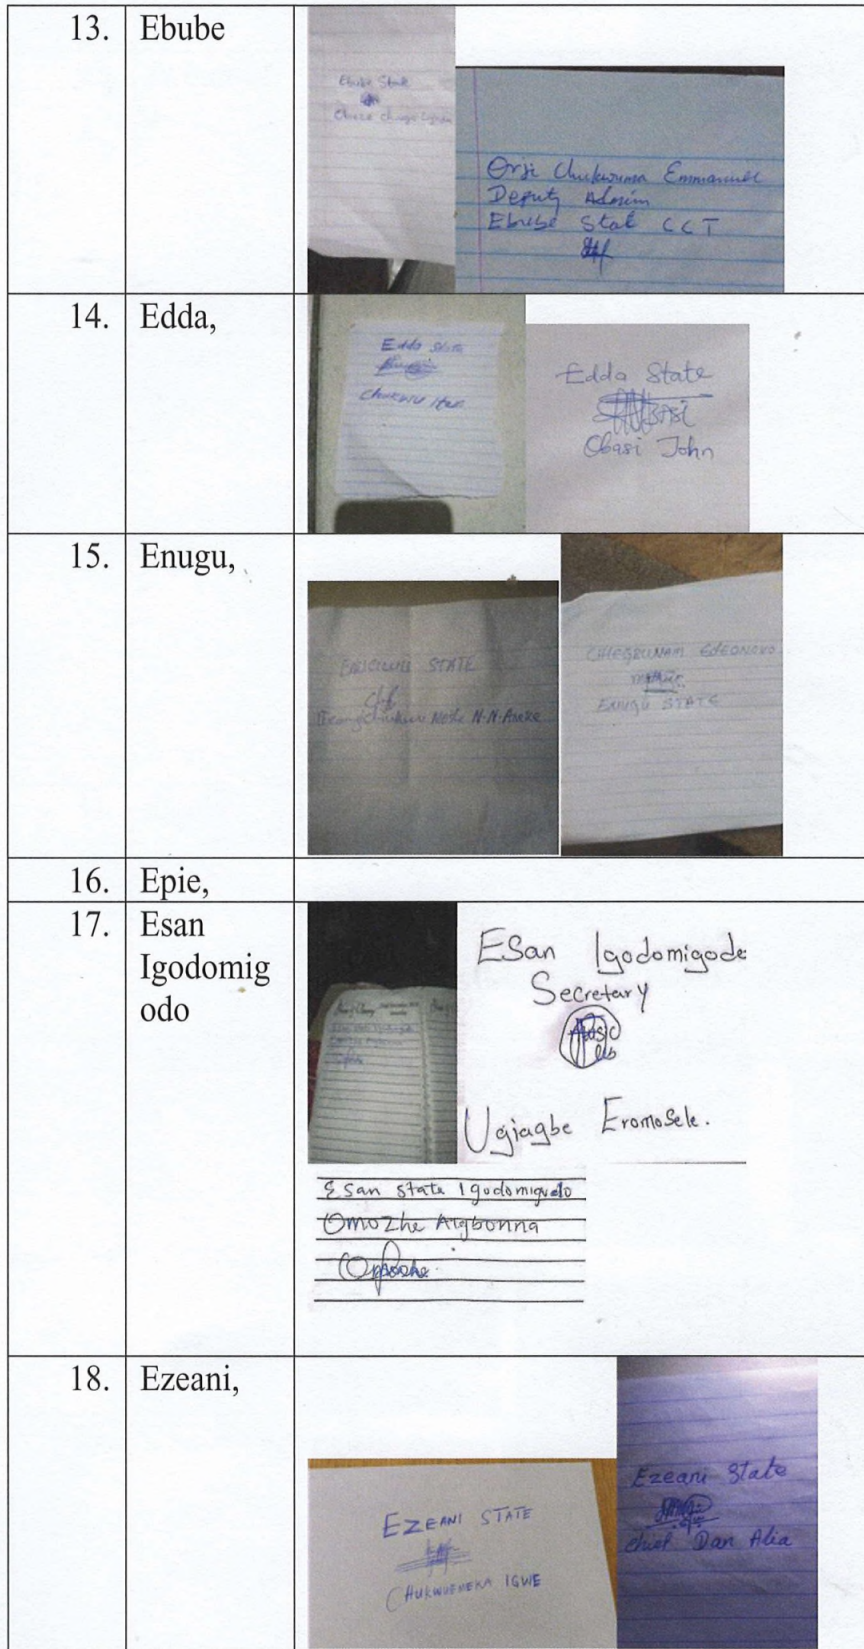 13. Ebube
Ebube State
Orji Chukwuma Emmanuel
Deputy Admin
Ebube Stat CCT
14. Edda,
Edda State
Chukwu Iten
Edda State
Obasi John
15. Enugu,
STATE
N.N.
ENUGU STATE
16. Epie,
17. Esan
Igodomig
odo
Esan Igodomigodo
Secretary
Ugiagbe Eromosele.
Esan State Igodomigodo
Omozhe Aigbonna
18. Ezeani,
EZEANI STATE
CHUKWUEMEKA IGWE
Ezeani State
Chief Dan Alia